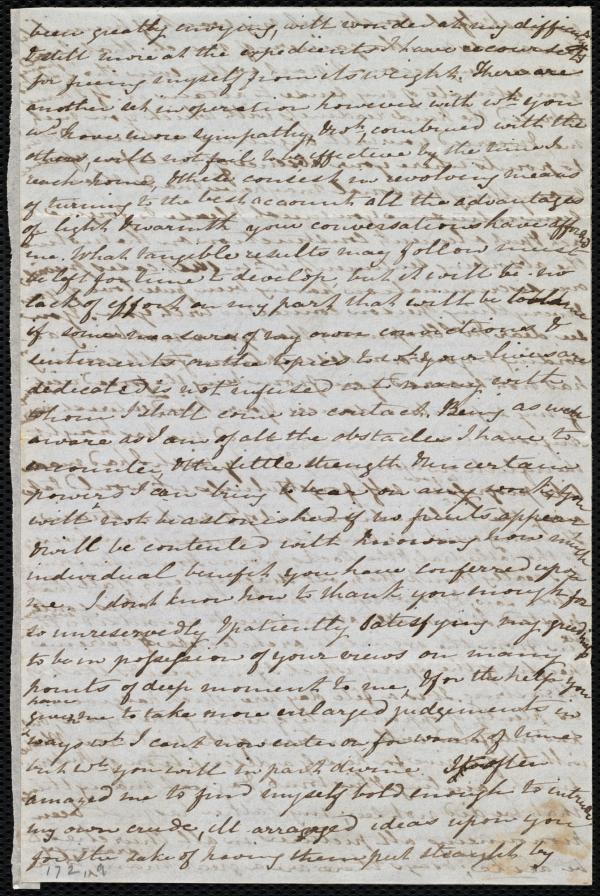 been greatly enjoying, with wonder at my difficulty
& still more at the expedients I have recourse to
for freeing myself from its weight. There are
another set in operation however with wh. you
wd. have more sympathy, & wh. combined with the
others, will not fail to be effective by the time I
reach home, & these consist in revolving means
of turning to the best account all the advantages
of light & warmth your conversations have afforded
me. What tangible results may follow must
be left for time to develop but it will be no
lack of effort on my part that will be to blame
if some measure of my own convictions &
sentiments on the topics to wh. your lives are
dedicated is not infused into many with
whom I shall come in contact. Being as well
aware as I am of all the obstacles I have to
encounter & the little strength & uncertain
powers I can bring to bear on any work, you
will not be astonished if no fruits appear
& will be contented with knowing how much
individual benefit you have conferred upon
me. I don't know how to thank you enough for
so unreservedly & patiently satisfying my
to be in possession of your views on many
points of deep moment to me, & for the help you
have given me to take more enlarged judgements in
ways wh. I can't now enter on for want of time
but wh. you will in part divine. It often
amazed me to find myself bold enough to intrude
my own crude, ill arranged ideas upon you
for the sake of having them put straight by
172